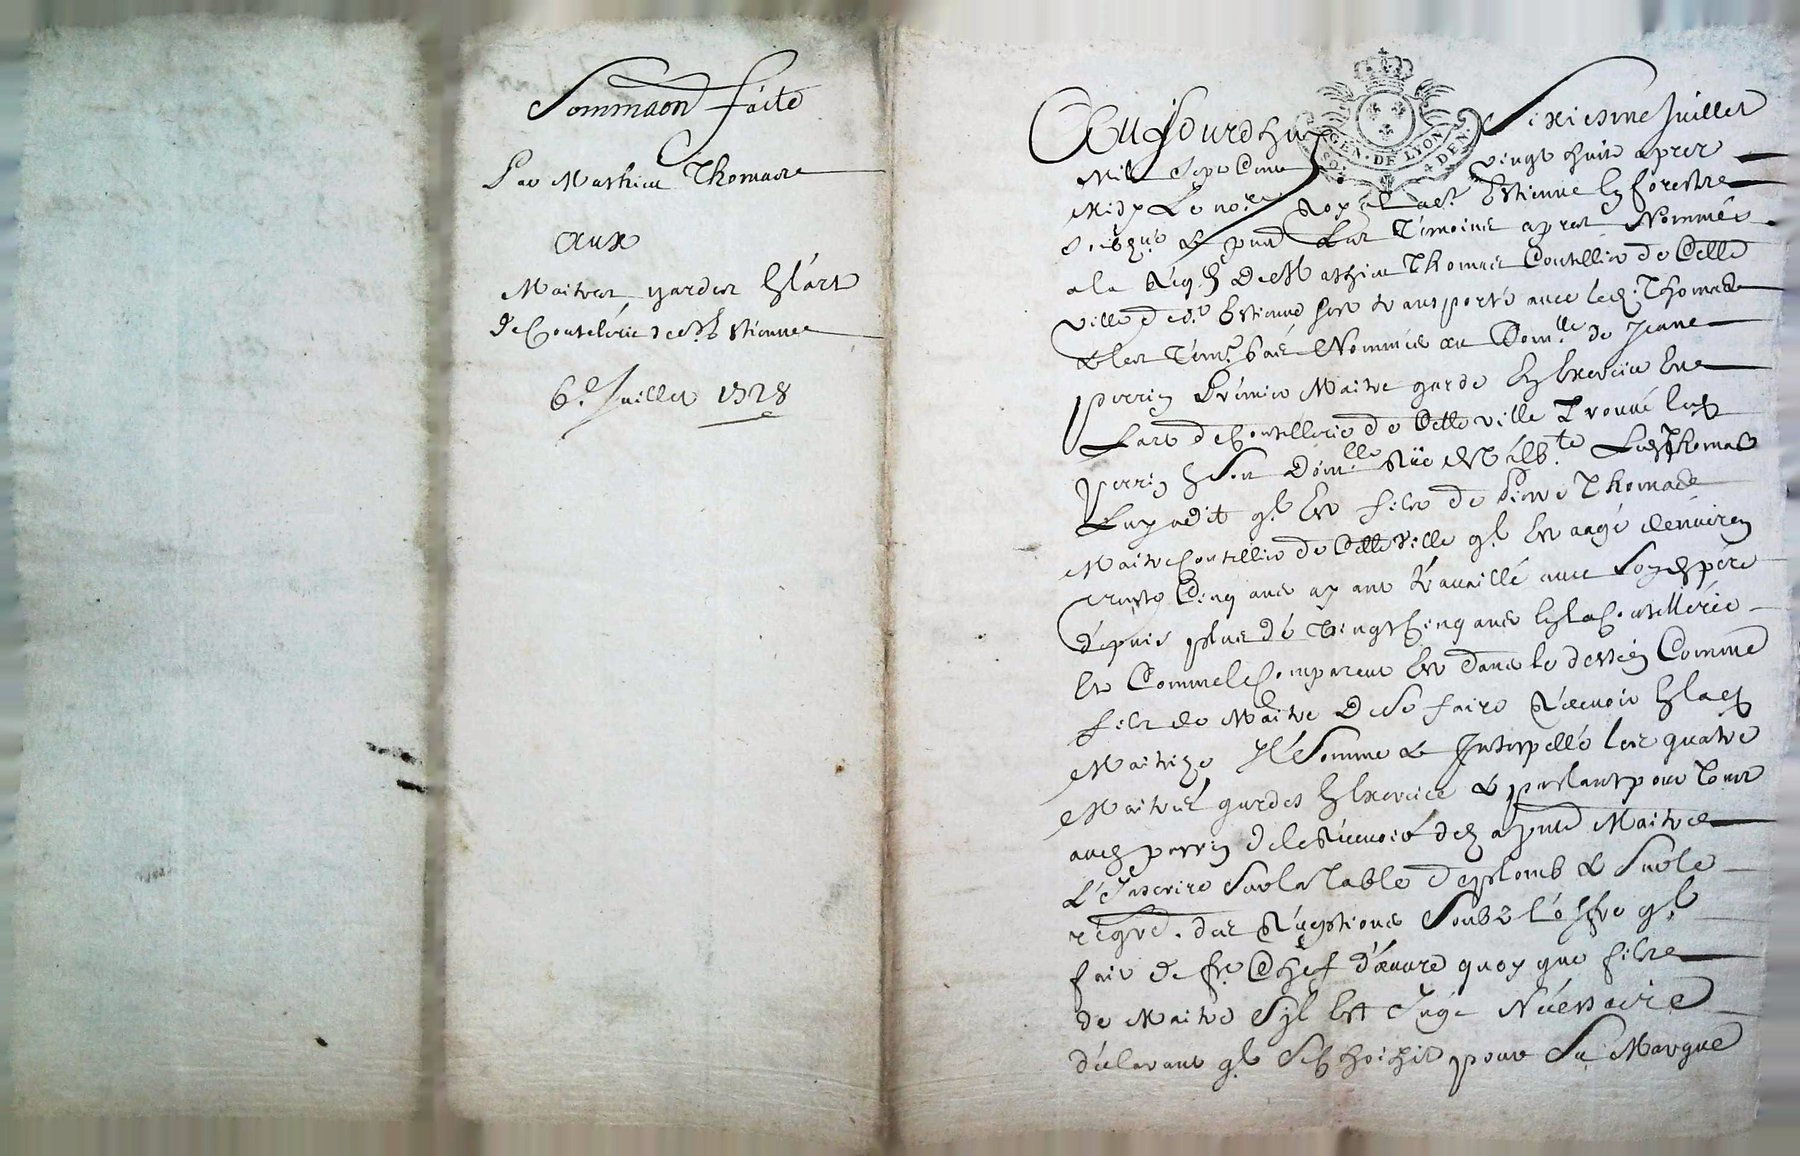 Sommaon faite
Par Mathieu Thomas
aux
Maitres gardes En l'art
de Coutelerie de St Estienne
6e Juillet 1728
Aujourdhuy Sixiesme Juillet
Mil Sept Cent vingt huit apres
Midy Le no.re Royal de St Estienne En forestz
Soubz.né & pnt Les Temoins apres Nommés
a la Req.on De Mathieu Thomas Coutellier de Cette
ville de St Estienne sest transporté avec led. Thomas
& les Tem. bas Nommés au Dom.lle de Jeane
perrin Premier Maitre garde En Exercice En
Lart de Coutellerie de Cette ville Trouvé led
perrin En Son Dom.lle Rüe Led Thomas
Luy a dit q.l Est fils de Pierre Thomas
Maitre Coutellier de Cette Ville q.l Est aagé denviron
trente Cinq ans ayant travaillé avec Son d pere
depuis plus de vingt Cinq ans En la Coutellerie
Et Comme le Comparant Est dans le dessein Comme
fils de Maitre De Se faire Recevoir En lad
Maitrize Il Somme & Interpelle les quatre
Maitres gardes En Exercice & parlant pour Tous
aud perrin de le Recevoir des a pnt Maitre
L'Inscrire Sur la Table de plomb & Sur le
regre. des Receptions Soubz l'offre q.l
fait de fre Chef d'œuvre quoy que fils
de Maitre Syl Est Jugé Nécessaire
déclarant q.l Choisit pour Sa Marque